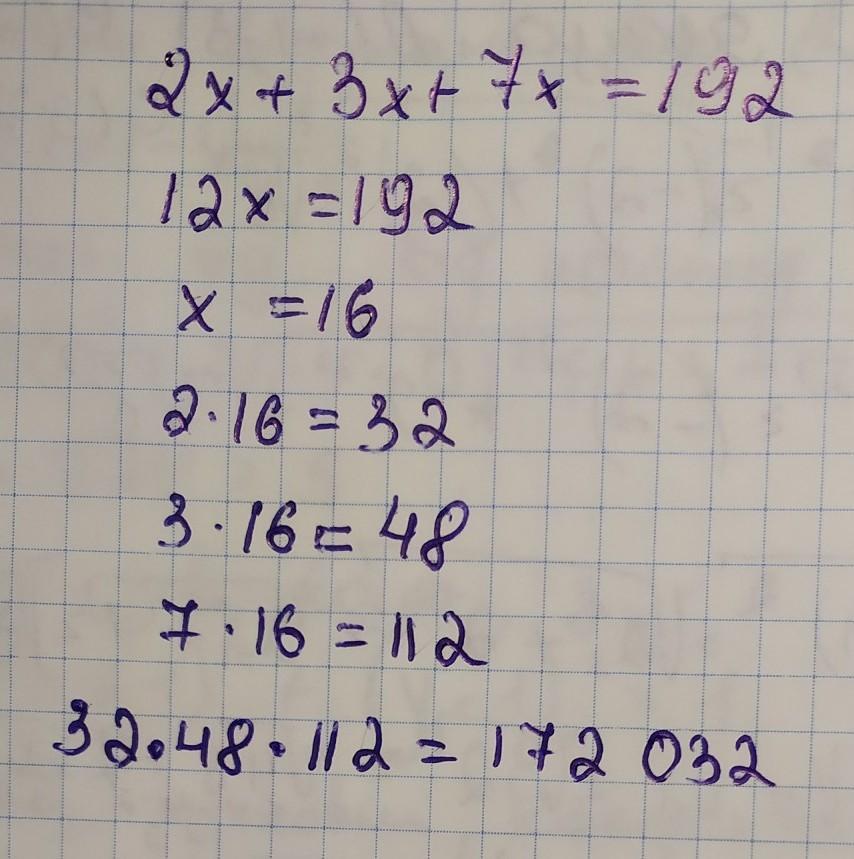 2x + 3x + 7x = 192
12x = 192
x = 16
2 · 16 = 32
3 · 16 = 48
7 · 16 = 112
32 · 48 · 112 = 172 032